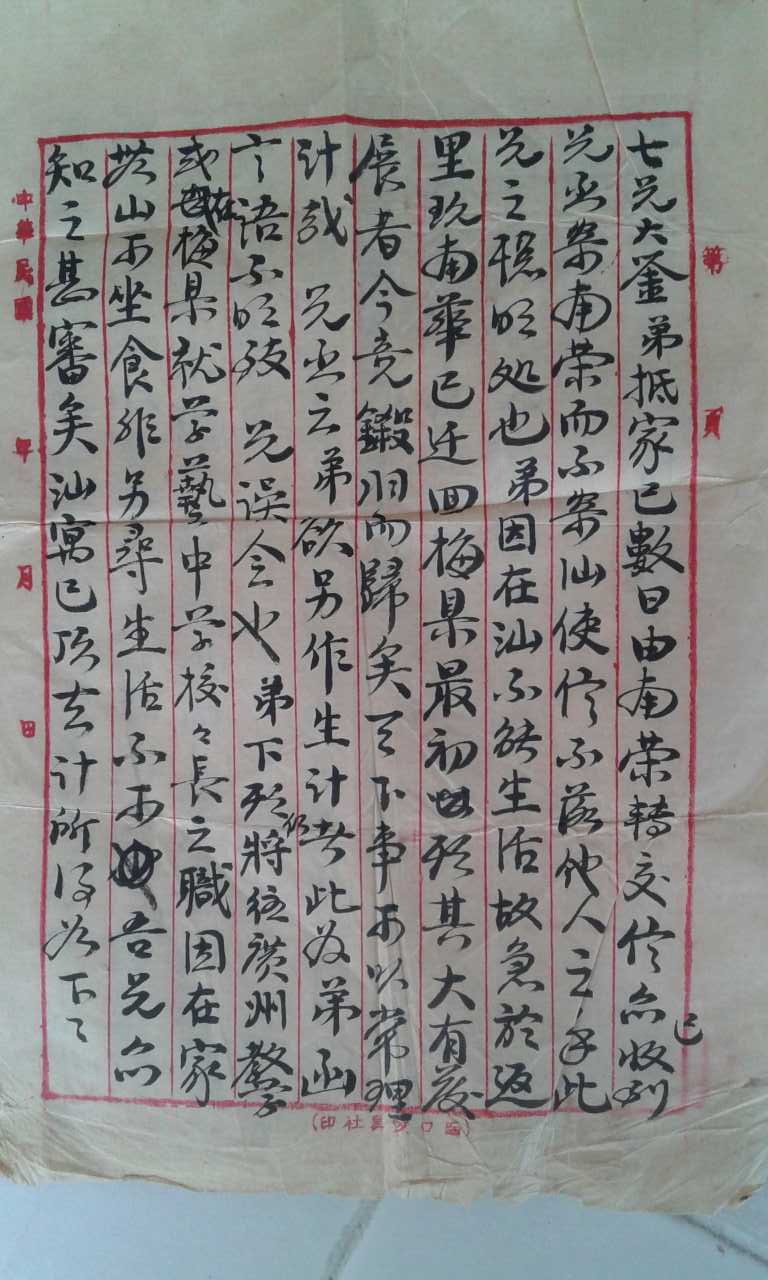 七兄大鉴弟抵家已數日由南荣轉交信亦已收到
兄出案南荣而不案汕使信不落他人之手此
兄之聪明処也弟因在汕不能生活故急於返
里玖南華已迁回梅県最初出形其大有發
展者今竟鎩羽而歸矣天下事不可以常理
計哉 兄出云弟欲另作生計者此为弟函
言語不明致 兄误会也 弟下形仍将往廣州教学
或在梅県就学藝中学校々長之職因在家
坐食非另尋生活不可 吾兄亦
知之甚審矣汕寓已顶去計所得为下々
第 頁
中華民國 年 月 日